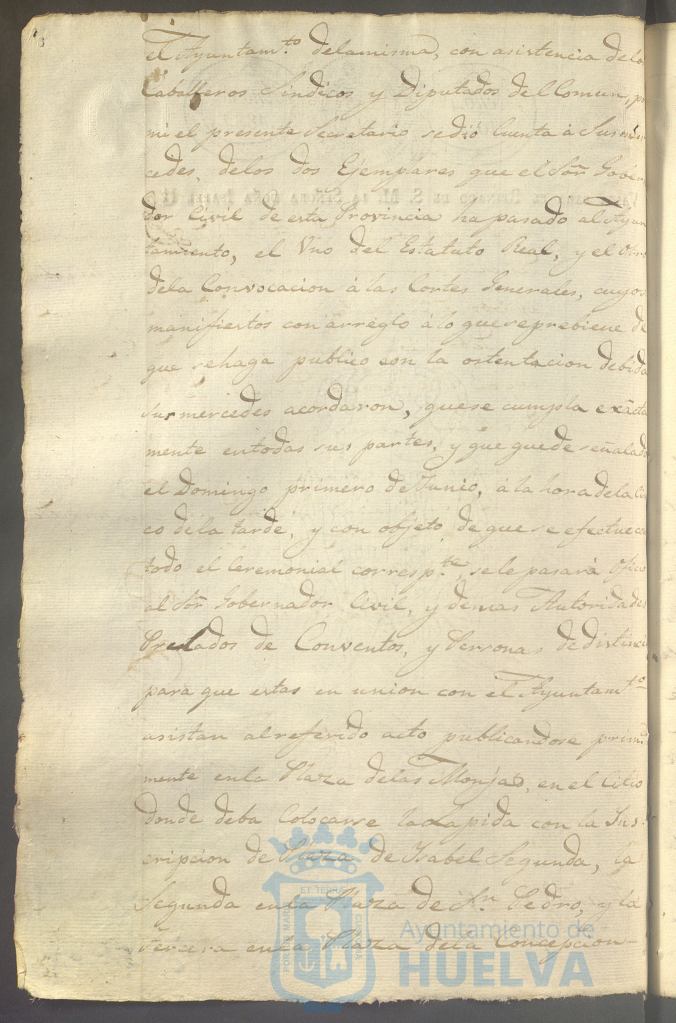 el Ayuntam.to delamisma, con asistencia delo
Caballeros Sindicos y Diputados del Comun, p
mi el presente Secretario sedió Cuenta á Sus
cedes, delos dos Ejemplares que el Sõr Gober
dor Civil de esta Provincia ha pasado al Ayun
tamiento, el Uno del Estatuto Real, y el Otro
dela Convocacion á las Cortes Generales, cuyos
manifiestos con arreglo á lo quese prebiene de
que sehaga publico con la ostentacion debida
sus mercedes acordaron, quese cumpla exacta
mente entodas sus partes, y que quede señalado
el Domingo primero de Junio, á la hora dela Cin
co dela tarde, y con objeto de que se efectue co
todo el Ceremonial corresp.te, sele pasará Ofici
al Sõr Gobernador Civil, y demas Autoridades
Prelados de Conventos, y Personas de distinci
para que estas en union con el Ayuntam.to
asistan alreferido acto publicandose prim
mente enla Plaza delas Monjas, en el Citio
donde deba Colocarse la Lapida con la Ins
cripcion de Plaza de Isabel Segunda, la
Segunda enla Plaza de S.n Pedro, y la
Tercera enla Plaza dela Concepcion
PORTUS MARIS ET TERRAE CUSTODIA
Ayuntamiento de
HUELVA